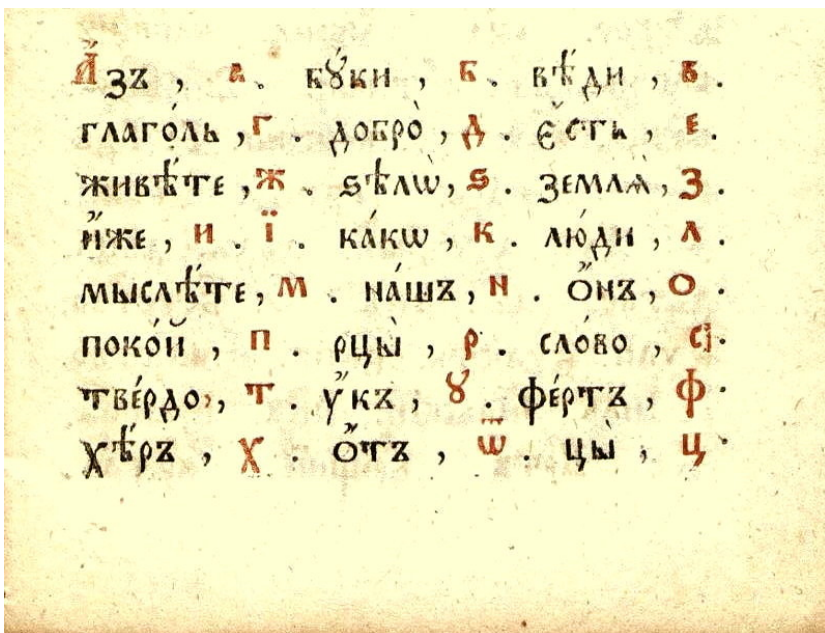 А҆́зъ , а . бꙋ́ки , б . вѣ́ди , в .
глаго́ль , г . добро̀ , д . є҆́сть , е .
живѣ́те , ж . ѕѣлѡ̀ , ѕ . землѧ̀ , з .
и҆́же , и . ї . ка́кѡ , к . лю́ди , л .
мыслѣ́те , м . на́шъ , н . ѻ҆́нъ , о .
поко́й , п . рцы̀ , р . сло́во , с .
тве́рдо , т . ᲂу҆́къ , ꙋ . фе́ртъ , ф .
хѣ́ръ , х . ѻ҆́тъ , ѿ . цы̀ , ц .